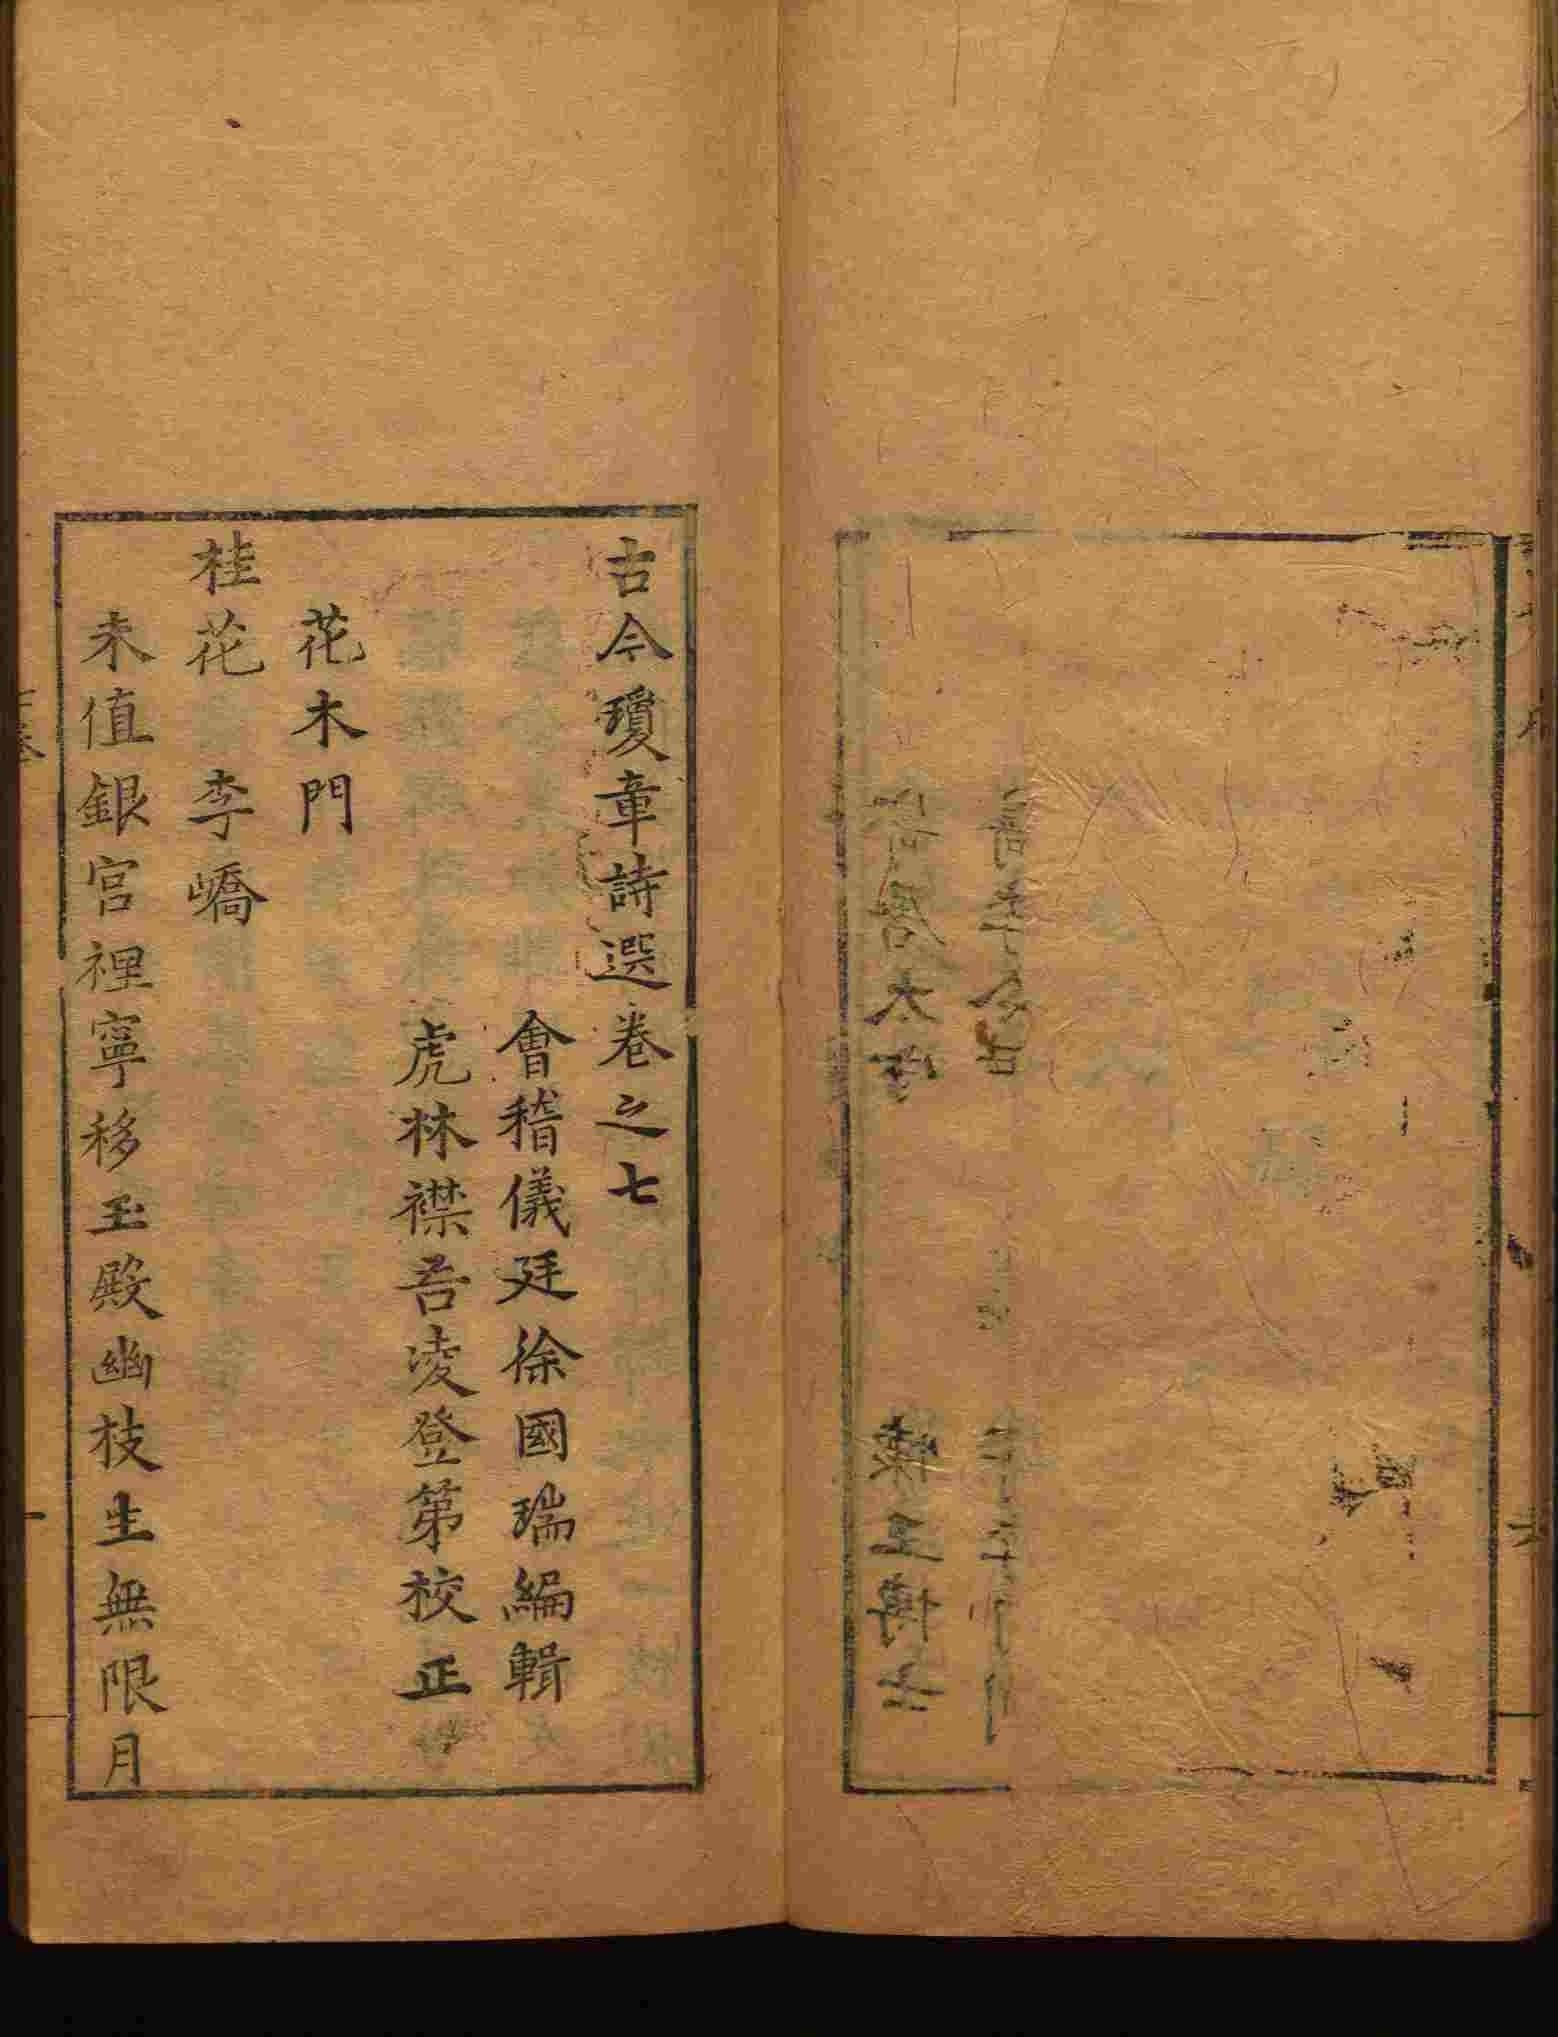 古今瓊章詩選卷之七
會稽儀廷徐國瑞編輯
虎林襟吾凌登第校正
花木門
桂花 李嶠
未值銀宮裡寧移玉殿幽枝生無限月